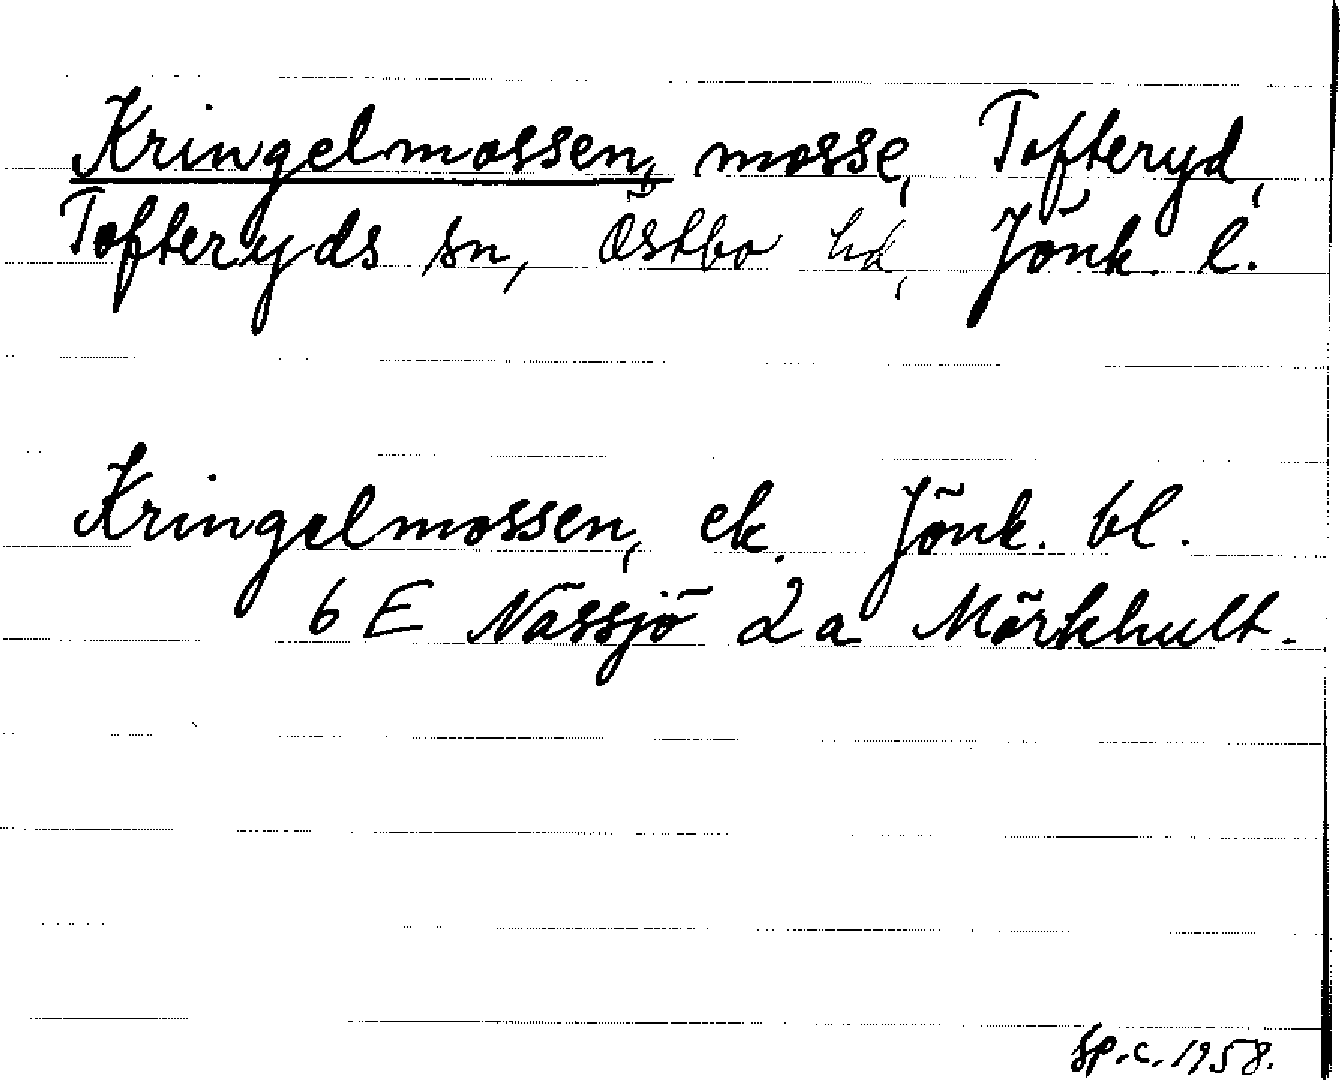 Kringelmossen, mosse, Tofteryd,
Tofteryds sn, Östbo hd, Jönk. l.
Kringelmossen, ek. Jönk. bl.
6 E Nässjö 2a Mörkhult.
Sp.c. 1958.